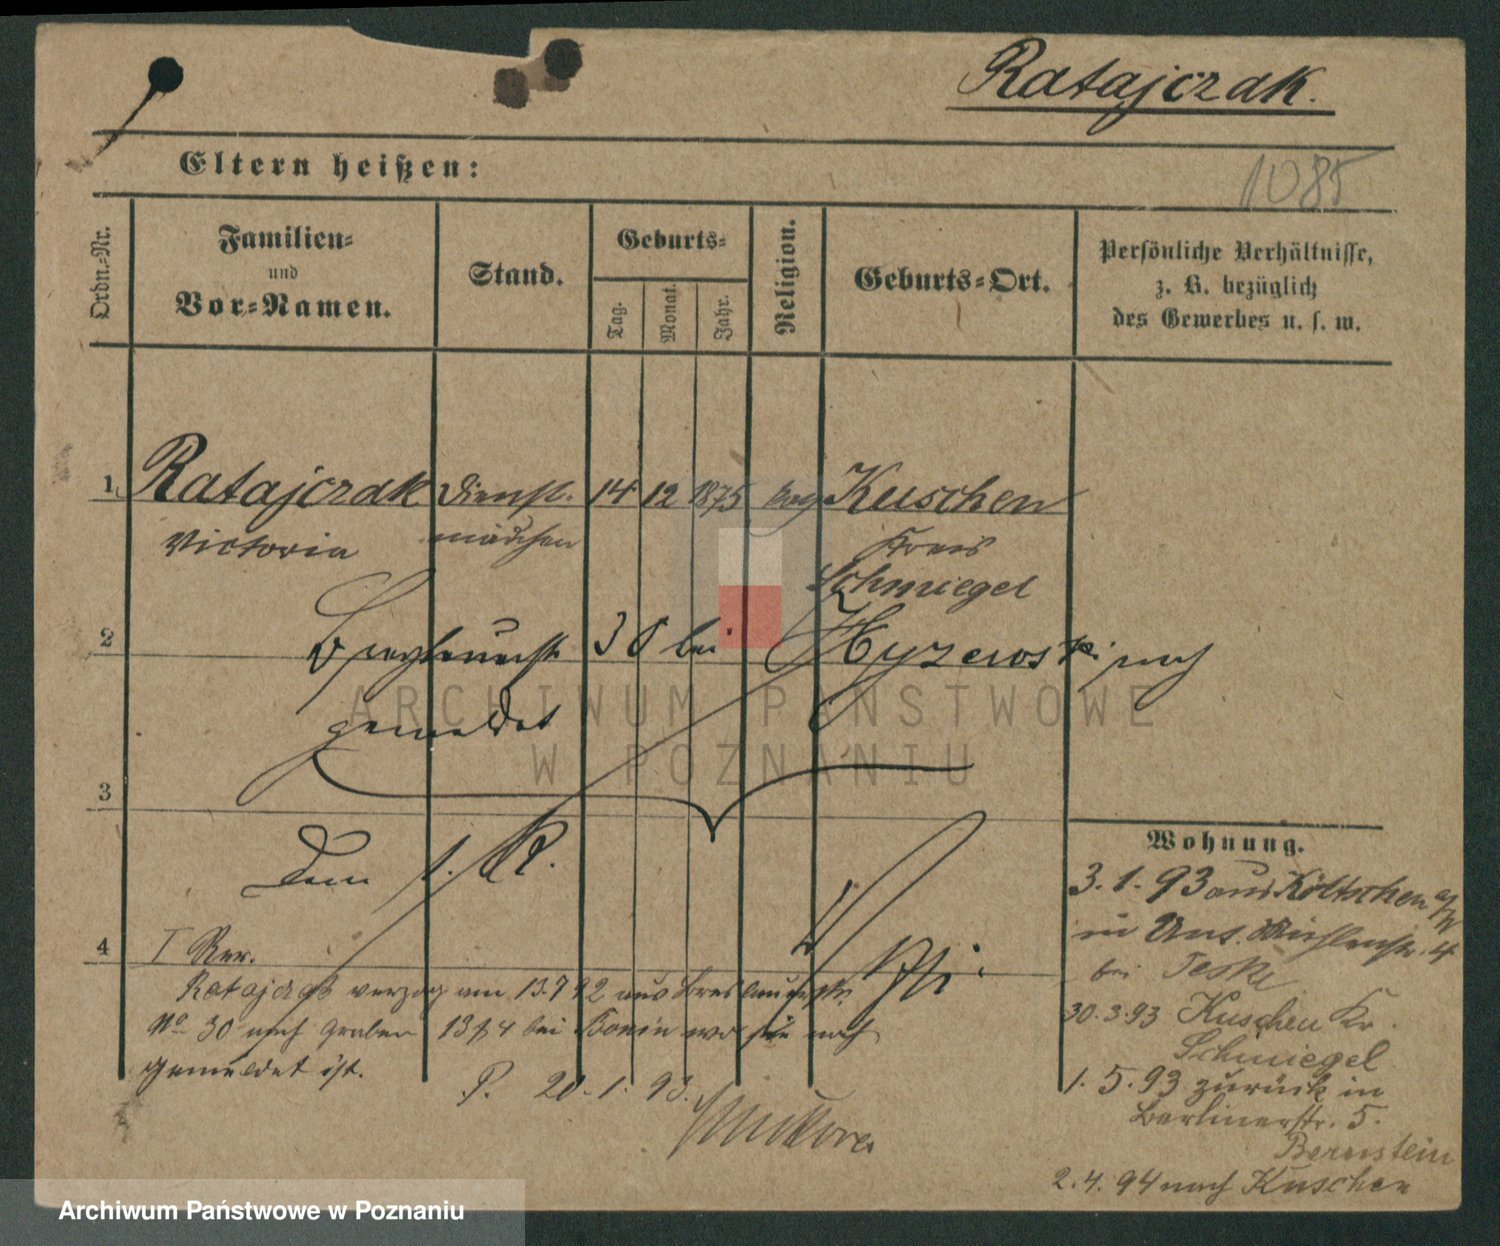 Ratajczak.
Eltern heißen:
1085
Ordn.-Nr.
Familien-
und
Vor-Namen.
Stand.
Geburts-
Tag.
Monat.
Jahr.
Religion.
Geburts-Ort.
Persönliche Verhältnisse,
z. B. bezüglich
des Gewerbes u. s. w.
1 Ratajczak Dienst- 14 12 1875 Kuschen
Victoria mädchen Kreis
Schmiegel
2 38 bei Hyzerowski noch
gemeldet
ARCHIWUM PAŃSTWOWE
W POZNANIU
3
Dem
Wohnung.
3.1.93 aus Költschen
in Unt. Mühlenstr. 4
bei Teske
30.3.93 Kuschen Kr.
Schmiegel
1.5.93 zurück in
Berlinerstr. 5.
Bernstein
2.4.94 nach Kuschen
4 I Rev.
Ratajczak verzog am 13.7 92 aus Breslauerstr.
No 30 nach Graben 13/4 bei Bonin wo sie noch
gemeldet ist.
P. 20.1.93.
Archiwum Państwowe w Poznaniu